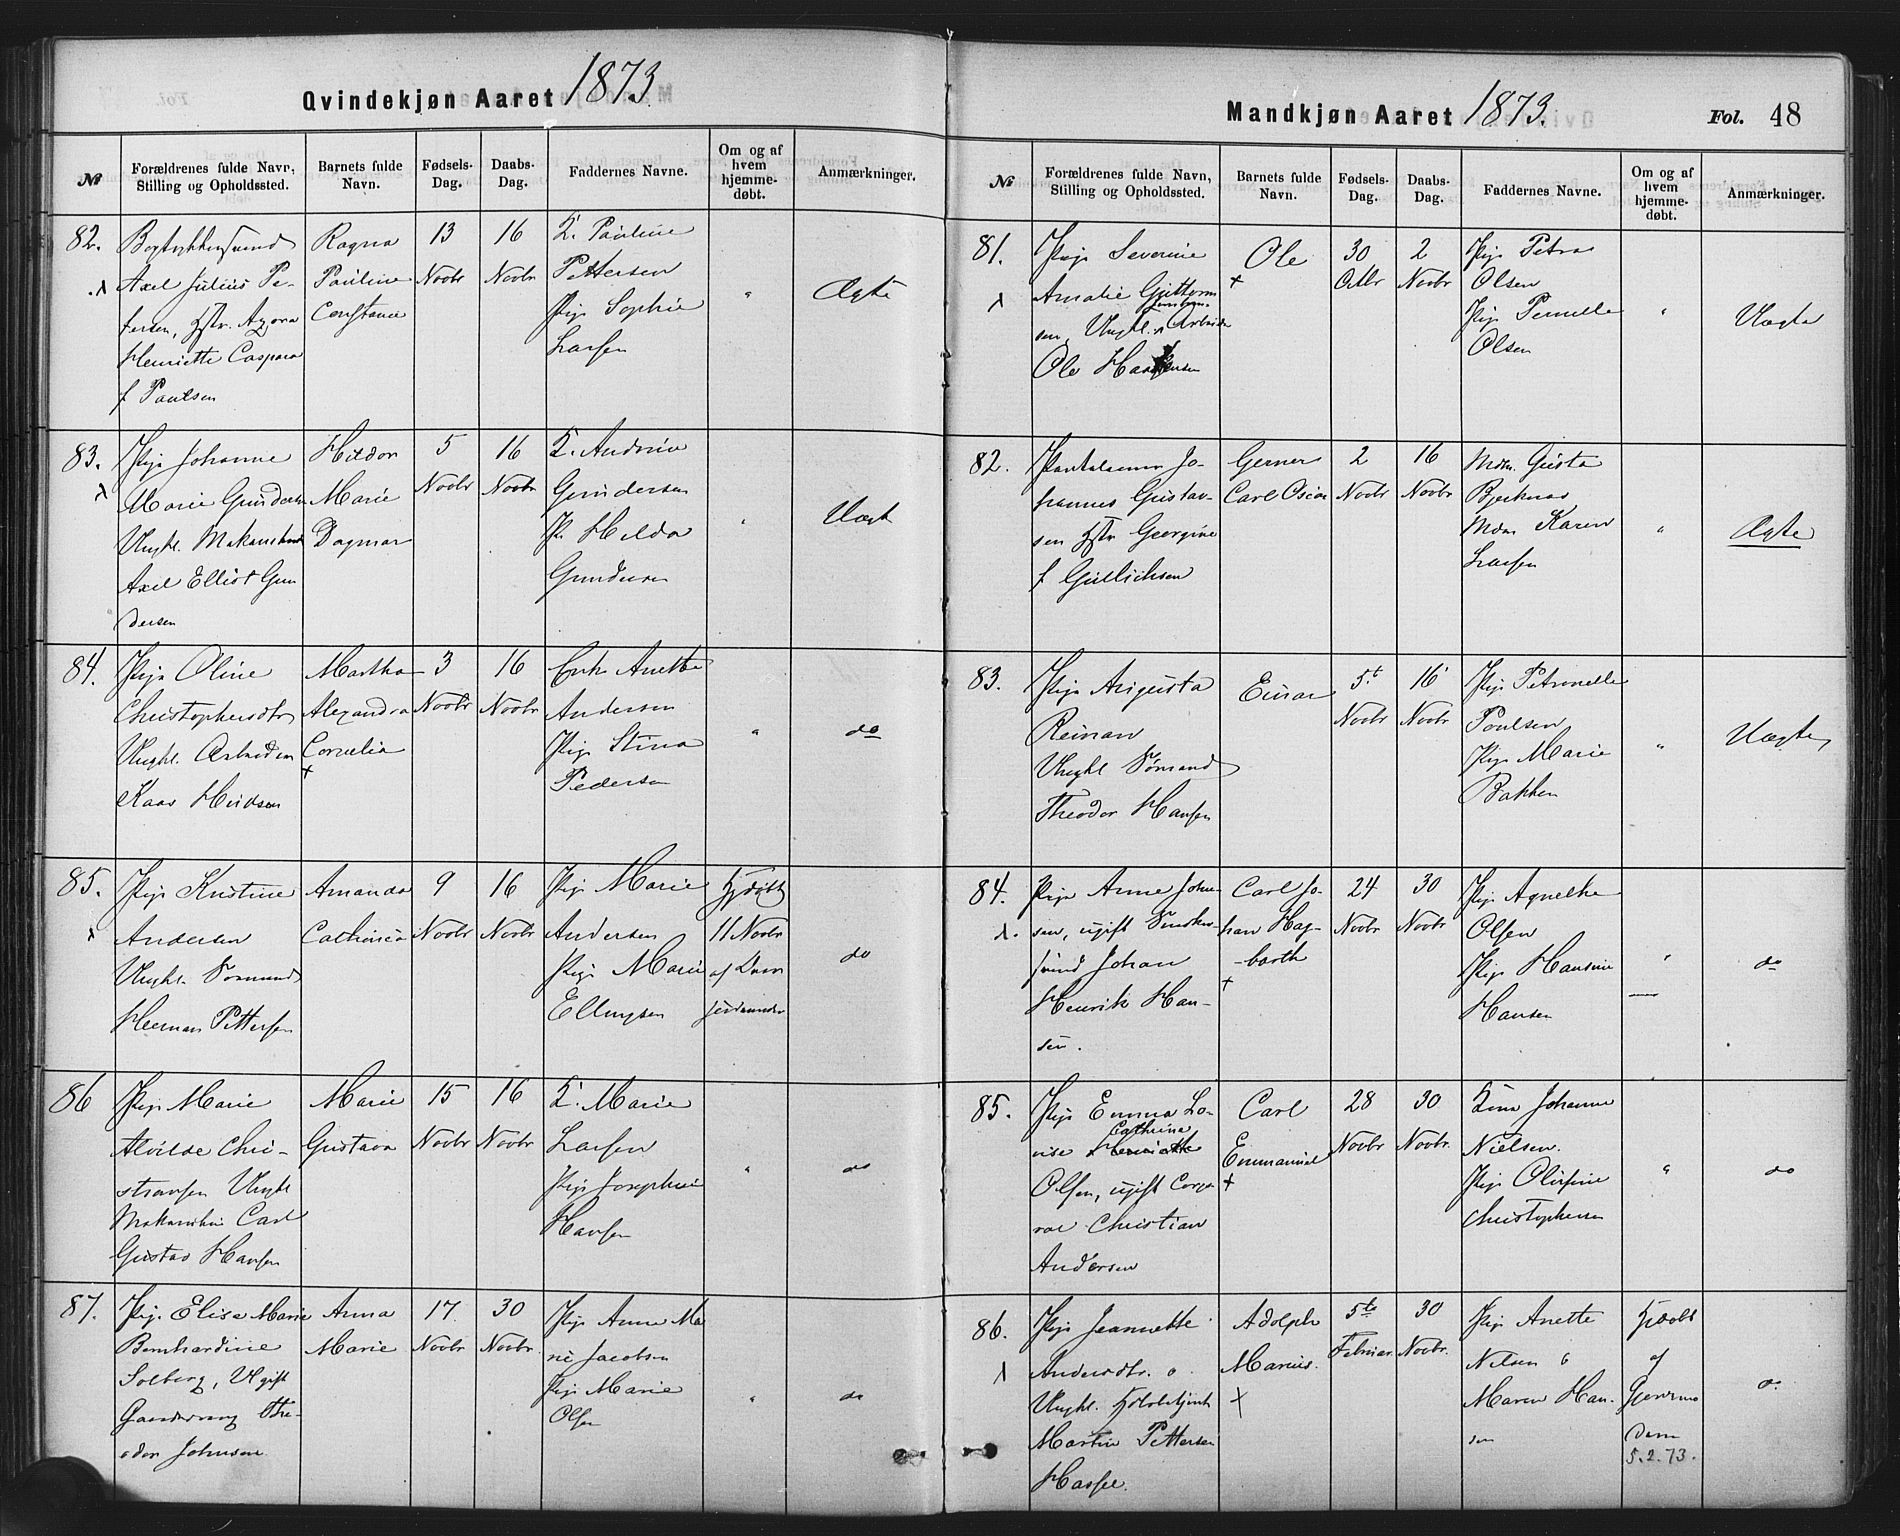 Qvindekjøn Aaret 1873.
№
Forældrenes fulde Navn, Stilling og Opholdssted.
Barnets fulde Navn.
Fødsels-Dag.
Daabs-Dag.
Faddernes Navne.
Om og af hvem hjemme-døbt.
Anmærkninger.
82.
Axel Julius Pe-
tersen, Hstr. Agora
Henriette Caspara
f Paulsen
Ragna
Pauline
Constance
13
Novbr
16
Novbr
K. Pauline
Pettersen
Pige Sophie
Larsen
"
Ægte
83.
Pige Johanne
Marie Gundersen
Ungkl.
Axel Elliot Gun
dersen
Hildor
Marie
Dagmar
5
Novbr
16
Novbr
K. Andrine
Gundersen
P. Hilda
Gundersen
"
Uægt
84.
Pige Oline
Christophersdtr
Ungkl. Arbeider
Martha
Alexandra
Cornelia
+
3
Novbr
16
Novbr
Enke Anette
Andersen
Pige Stina
Pedersen
"
do
85.
Pige Kristine
Andersen
Ungkl. Sømand
Herman Pettersen
Amanda
Cathinca
9
Novbr
16
Novbr
Pige Marie
Andersen
Pige Marie
Ellingsen
Hjdøbt
11 Novbr
af
do
86
Pige Marie
Alvilde Chri-
stiansen Ungkl
Carl
Gustav Hansen
Marie
Gustava
15
Novbr
16
Novbr
K. Marie
Larsen
Pige Josephine
Hansen
"
do
87.
Pige Elise Marie
Bernhardine
Solberg, Ugift
The-
odor Johnsen
Anna
Marie
17
Novbr
30
Novbr.
Pige Anne Ma
rie Jacobsen
Pige Marie
Olsen
"
do
Mandkjøn Aaret 1873.
Fol. 48
№
Forældrenes fulde Navn, Stilling og Opholdssted.
Barnets fulde Navn.
Fødsels-Dag.
Daabs-Dag.
Faddernes Navne.
Om og af hvem hjemme-døbt.
Anmærkninger.
81.
Pige Severine
Amalie Guttorm
sen, Ungkl. Arbeider
Ole
Ole
+
30
Octbr
2
Novbr
Pige Petra
Olsen
Pige Pernelle
Olsen
"
Uægte
82.
Jo-
hannes Gustav-
sen Hstr Georgine
f Gullichsen
Gerner
Carl Oscar
2
Novbr
16
Novbr
Mdm. Gusta
Bjerknes
Mdm Karen
Larsen
"
Ægte
83.
Pige Augusta
Reinan
Ungkl Sømand
Theodor Hansen
Einar
5t
Novbr
16
Novbr
Pige Petronelle
Poulsen
Pige Marie
Bakken
"
Uægte
84.
Pige Anne John
sen, ugift Snedker-
svend Johan
Henrik Han-
sen.
Carl Jo-
han Hag-
-barth
+
24
Novbr
30
Novbr
Pige Agnethe
Olsen
Pige Hansine
Hansen
"
do
85.
Pige Emma Lo-
vise Cathrine
Olsen, ugift Corpo
ral Christian
Andersen
Carl
Emmanuel
+
28
Novbr
30
Novbr.
Kone Johanne
Nielsen.
Pige Olufine
Christophersen
"
do
86.
Pige Jeannette
Andersdtr. o
Ungkl.
Martin Pettersen
Adolph
Marius.
+
5te
Februar
30
Novbr.
Pige Anette
Nilsen o
Maren Han-
sen
Hjdøbt
af
5.2.73.
do